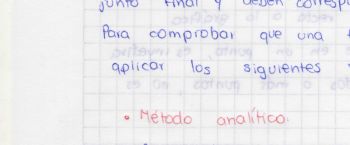 junto final y deben corresp
Para comprobar que una
aplicar los siguientes
• Método analítico.